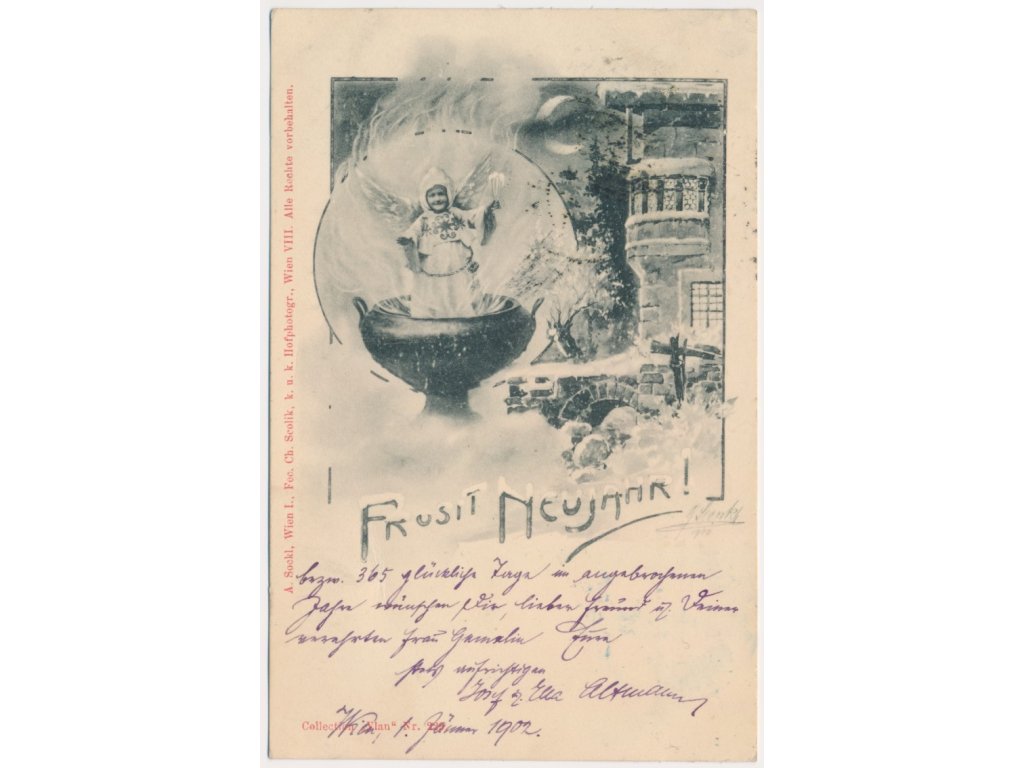 A. Sockl, Wien I., Fec. Ch. Scolik, k. u. k. Hofphotogr., Wien VIII. Alle Rechte vorbehalten.
PROSIT NEUJAHR!
bezw. 365 glückliche Tage im angebrochenen
Jahre wünschen Dir, lieber Freund u. Deiner
verehrten Frau Gemalin Eure
stets aufrichtigen
Josef u. Ella Altmann
Wien, 1. Jänner 1902.
Collection "Elan" Nr.